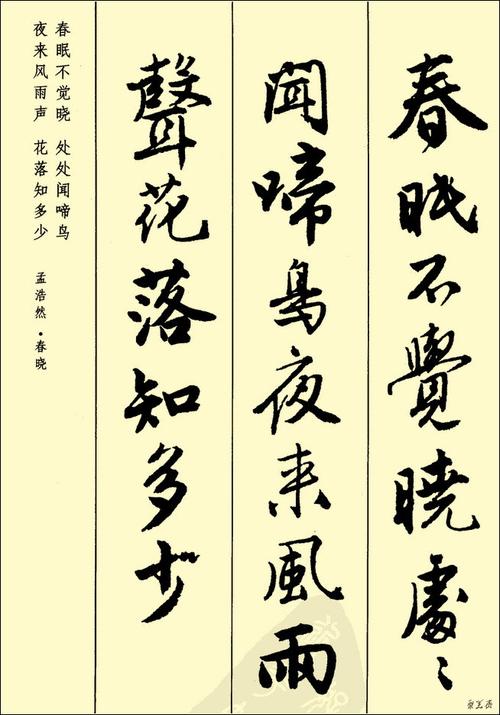 春眠不覺曉處〻
聞啼鳥夜来風雨
聲花落知多少
春眠不觉晓 处处闻啼鸟
夜来风雨声 花落知多少
孟浩然·春晓